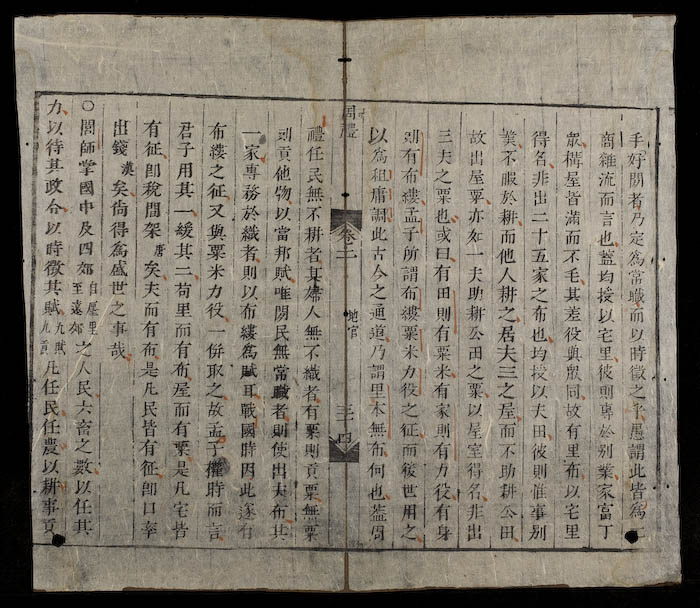 手好閒者乃定為常職而以時徵之乎愚謂此皆為工
商雜流而言也蓋均授以宅里彼則專於別業家富丁
眾構屋皆滿而不毛其差役與眾同故有里布以宅里
得名非出二十五家之布也均授以夫田彼則惟事別
業不暇於耕而他人耕之居夫三之屋而不助耕公田
故出屋粟亦如一夫助耕公田之粟以屋室得名非出
三夫之粟也或曰有田則有粟米有家則有力役有身
則有布縷孟子所謂布縷粟米力役之征而後世用之
以為租庸調此古今之通道乃謂里本無布何也蓋周
周禮
卷二
地官
三十四
禮任民無不耕者其婦人無不織者有粟則貢粟無粟
則貢他物以當邦賦唯閒民無常職者則使出夫布其
一家專務於織者則以布縷為賦耳戰國時因此遂有
布縷之征又與粟米力役一併取之故孟子權時而言
君子用其一緩其二苟里而有布屋而有粟是凡宅皆
有征即稅間架唐矣夫而有布是凡民皆有征即口率
出錢漢矣尚得為盛世之事哉
○閭師掌國中及四郊自廛里至遠郊之人民六畜之數以任其
力以待其政令以時徵其賦九賦九貢凡任民任農以耕事貢